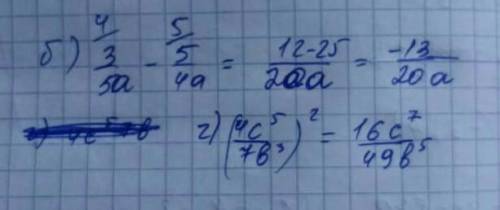 б) \frac{\overset{4}{3}}{5a} - \frac{\overset{5}{5}}{4a} = \frac{12-25}{20a} = \frac{-13}{20a}
г) \left(\frac{4c^5}{7b^3}\right)^2 = \frac{16c^7}{49b^5}